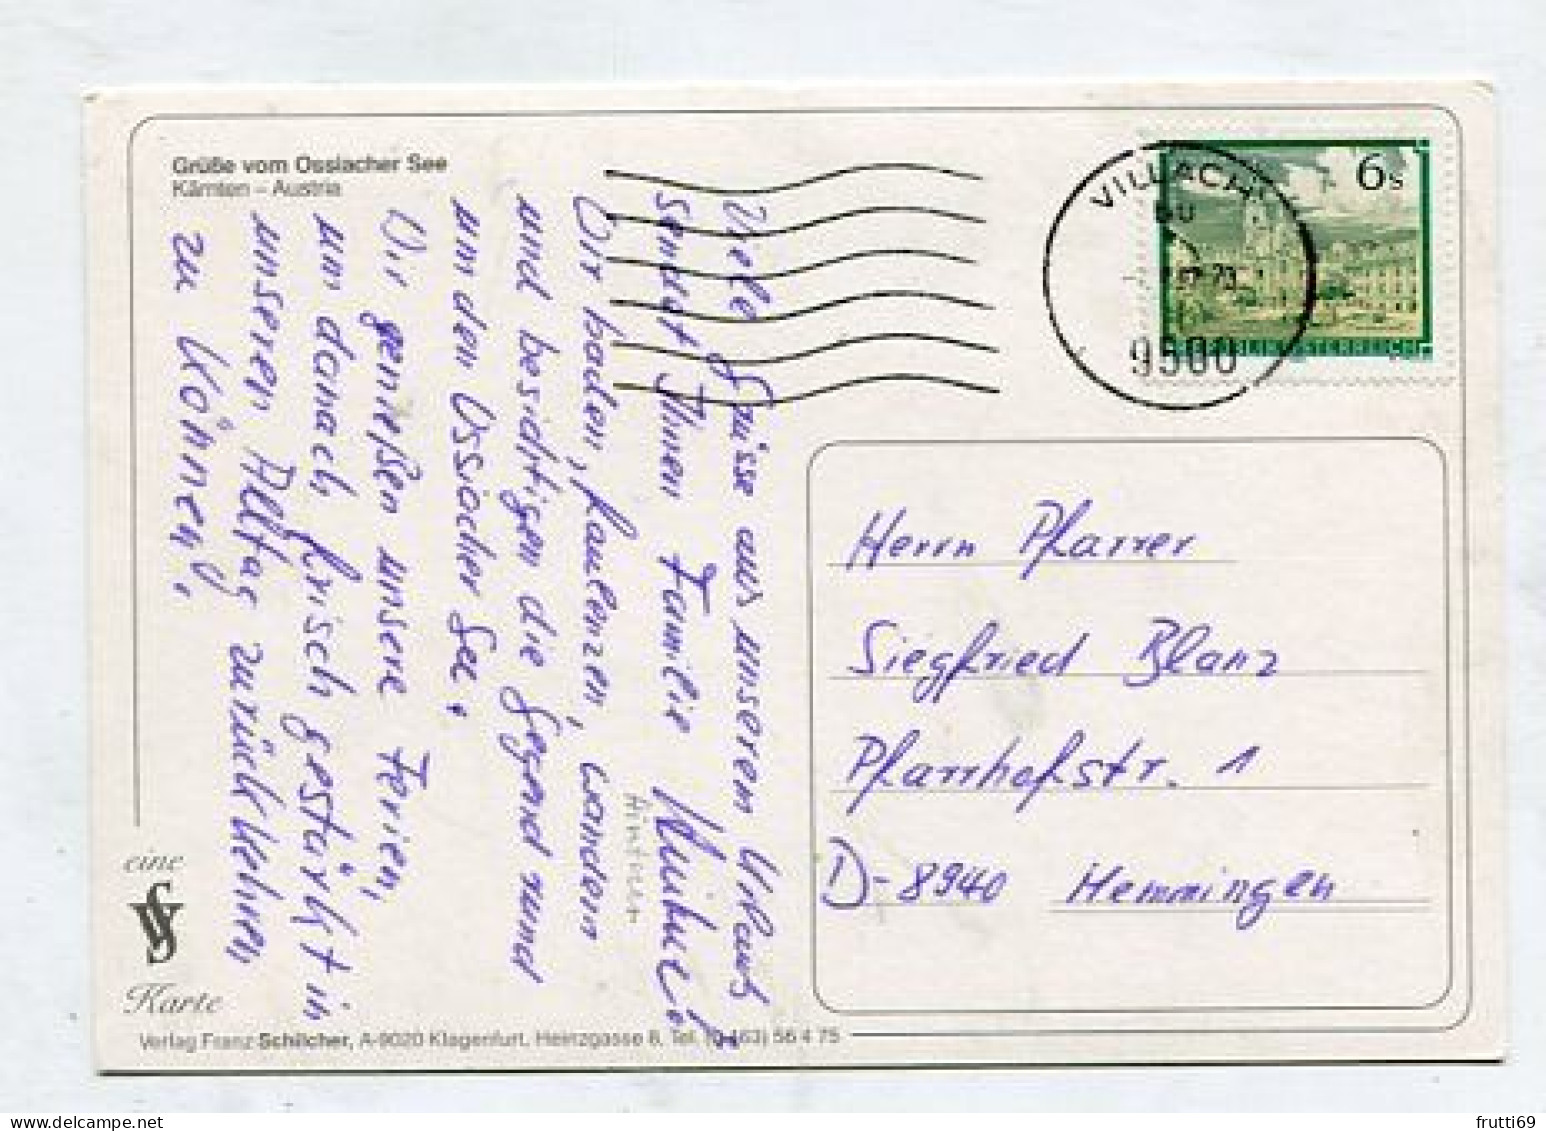 Grüße vom Ossiacher See
Kärnten – Austria
Viele Grüsse aus unserem Urlaub
sendet Ihnen Familie
Wir baden, faulenzen, wandern
und besichtigen die Gegend rund
um den Ossiacher See.
Wir genießen unsere Ferien,
um danach frisch gestärkt in
unseren Alltag zurückkehren
zu können.
VILLACH
9500
6s
REPUBLIK ÖSTERREICH
Herrn Pfarrer
Siegfried Blanz
Pfarrhofstr. 1
D-8940 Hemmingen
eine
Karte
Verlag Franz Schilcher, A-9020 Klagenfurt, Heinzgasse 8, Tel. (0 463) 56 4 75
frutti69